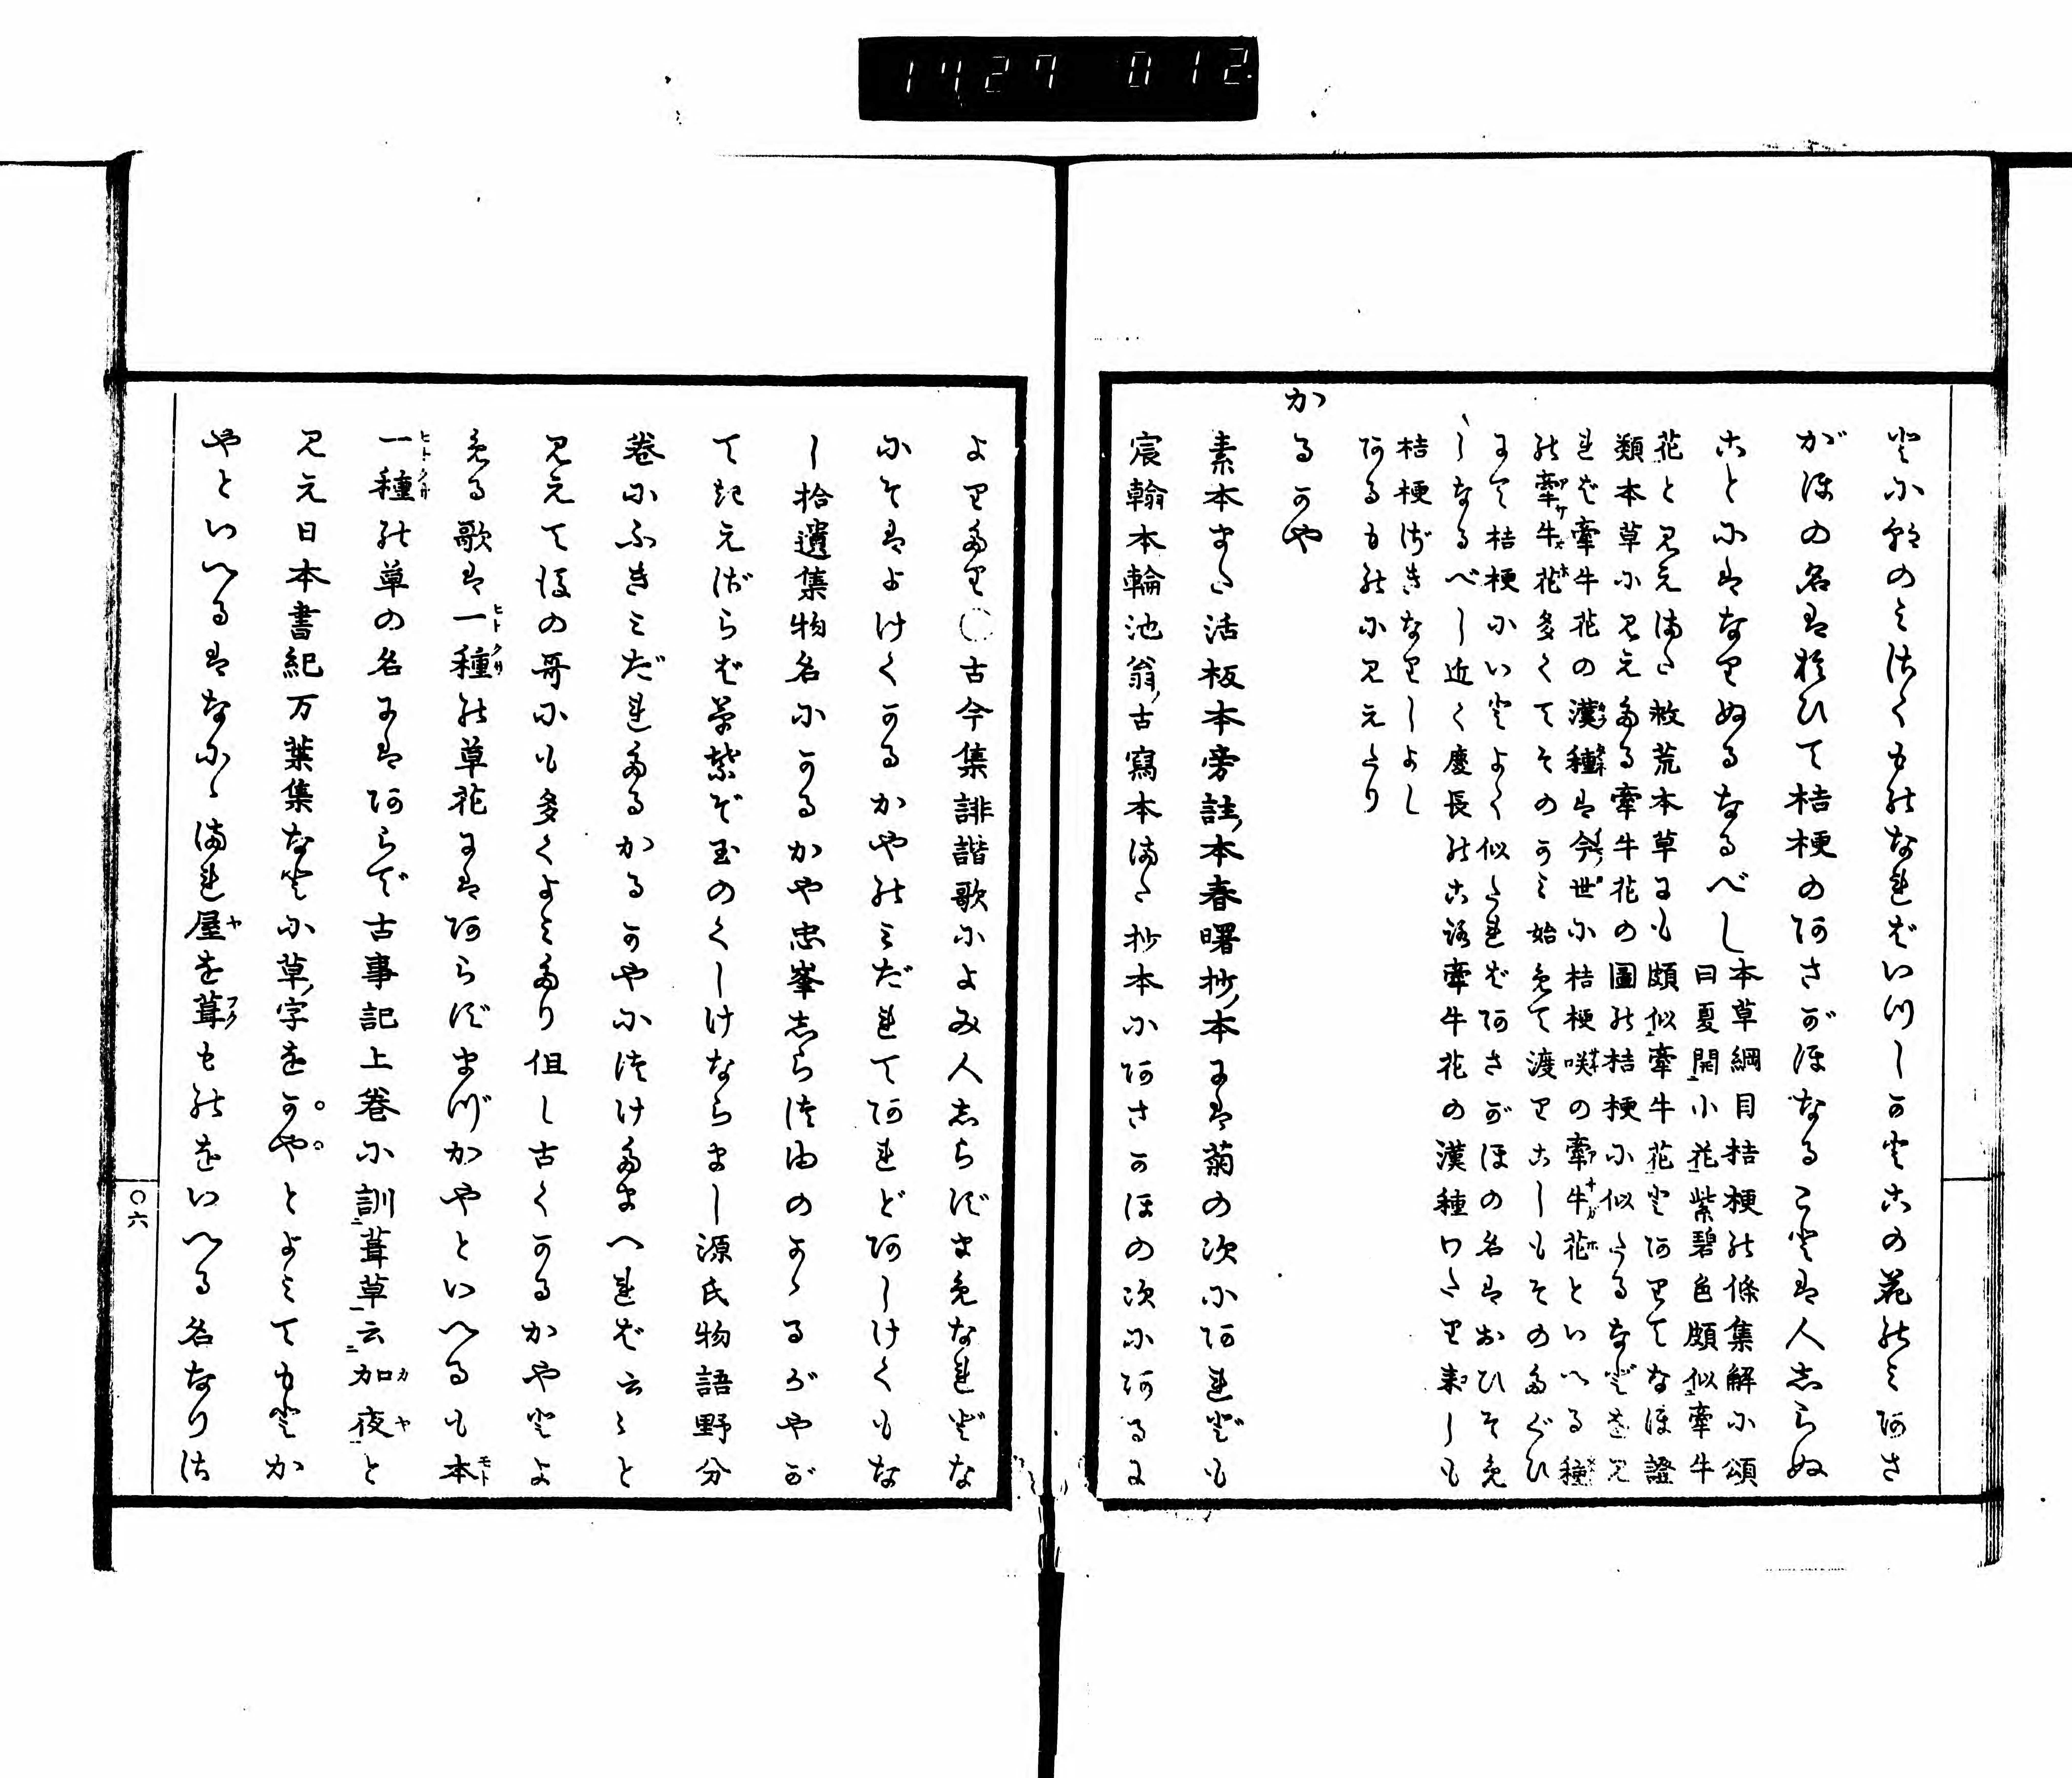 1427 012
と尓朝のミ佐くものなれバいつしかとこの花のミあさ
がほの名は於ひて桔梗のあさがほなることは人志らぬ
ことにはなりぬるなるべし
本草綱目桔梗の條集解小頌
曰夏開小花紫碧色頗似牽牛
花と見え満た救荒本草にも頗似牽牛花とありてなほ證
類本草に見えたる牽牛花の圖の桔梗に似たるなどを見
れば牽牛花の漢種は今世に桔梗咲の牽牛花といへる種
の牽牛花多くてそのかミ始めて渡りこしもそのたぐひ
にて桔梗にいとよく似たればあさがほの名はおひそめ
しなるべし近く慶長のころ牽牛花の漢種わたり来しも
桔梗ざきなりしよし
あるものに見えたり
かるかや
素本また活板本旁註本春曙抄本には菊の次にあれども
宸翰本輪池翁古寫本また抄本にあさかほの次にあるに
よりたり〇古今集誹諧歌によみ人志らずまめなれどな
にそはよけくかるかやのミだれてあれどあしけくもな
し拾遺集物名にかるかや忠峯志らつゆのかゝるがやが
てきえざらば草紫ぞ玉のくしけならまし源氏物語野分
巻にふきミだれたるかるかやにつけたまへれば云々と
見えて後の哥にも多くよミたり但し古くかるかやとよ
める歌は一種の草花にはあらずまづかやといへるも本
一種の草の名にはあらで古事記上巻に訓葺草云加夜と
見え日本書紀万葉集などに草字をかやとよミてもとか
やといへるはなにゝまれ屋を葺ものをいへる名なりさ
〇六